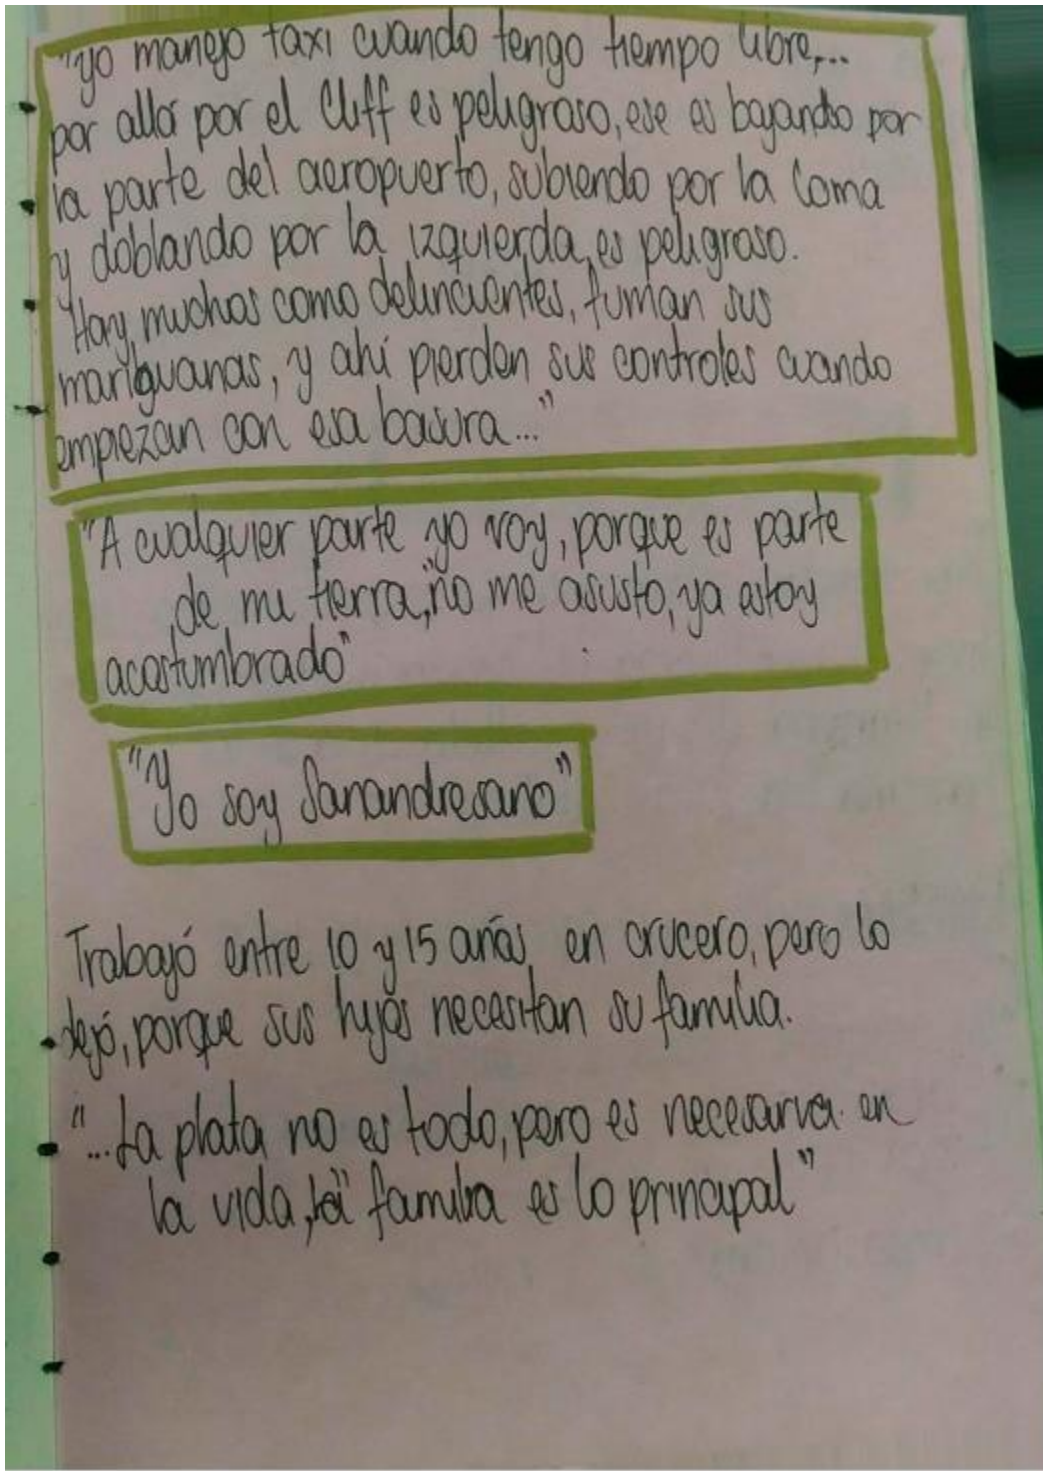 "yo manejo taxi cuando tengo tiempo libre,...
por allá por el Cliff es peligroso, ese es bajando por
la parte del aeropuerto, subiendo por la loma
y doblando por la izquierda, es peligroso.
Hay, muchos como delincuentes, fuman sus
mariguanas, y ahí pierden sus controles cuando
empiezan con esa basura..."
"A cualquier parte yo voy, porque es parte
de mi tierra, no me asusto, ya estoy
acostumbrado"
"Yo soy Sanandresano"
Trabajó entre 10 y 15 años, en crucero, pero lo
dejó, porque sus hijos necesitan su familia.
"...La plata no es todo, pero es necesaria en
la vida, la familia es lo principal"